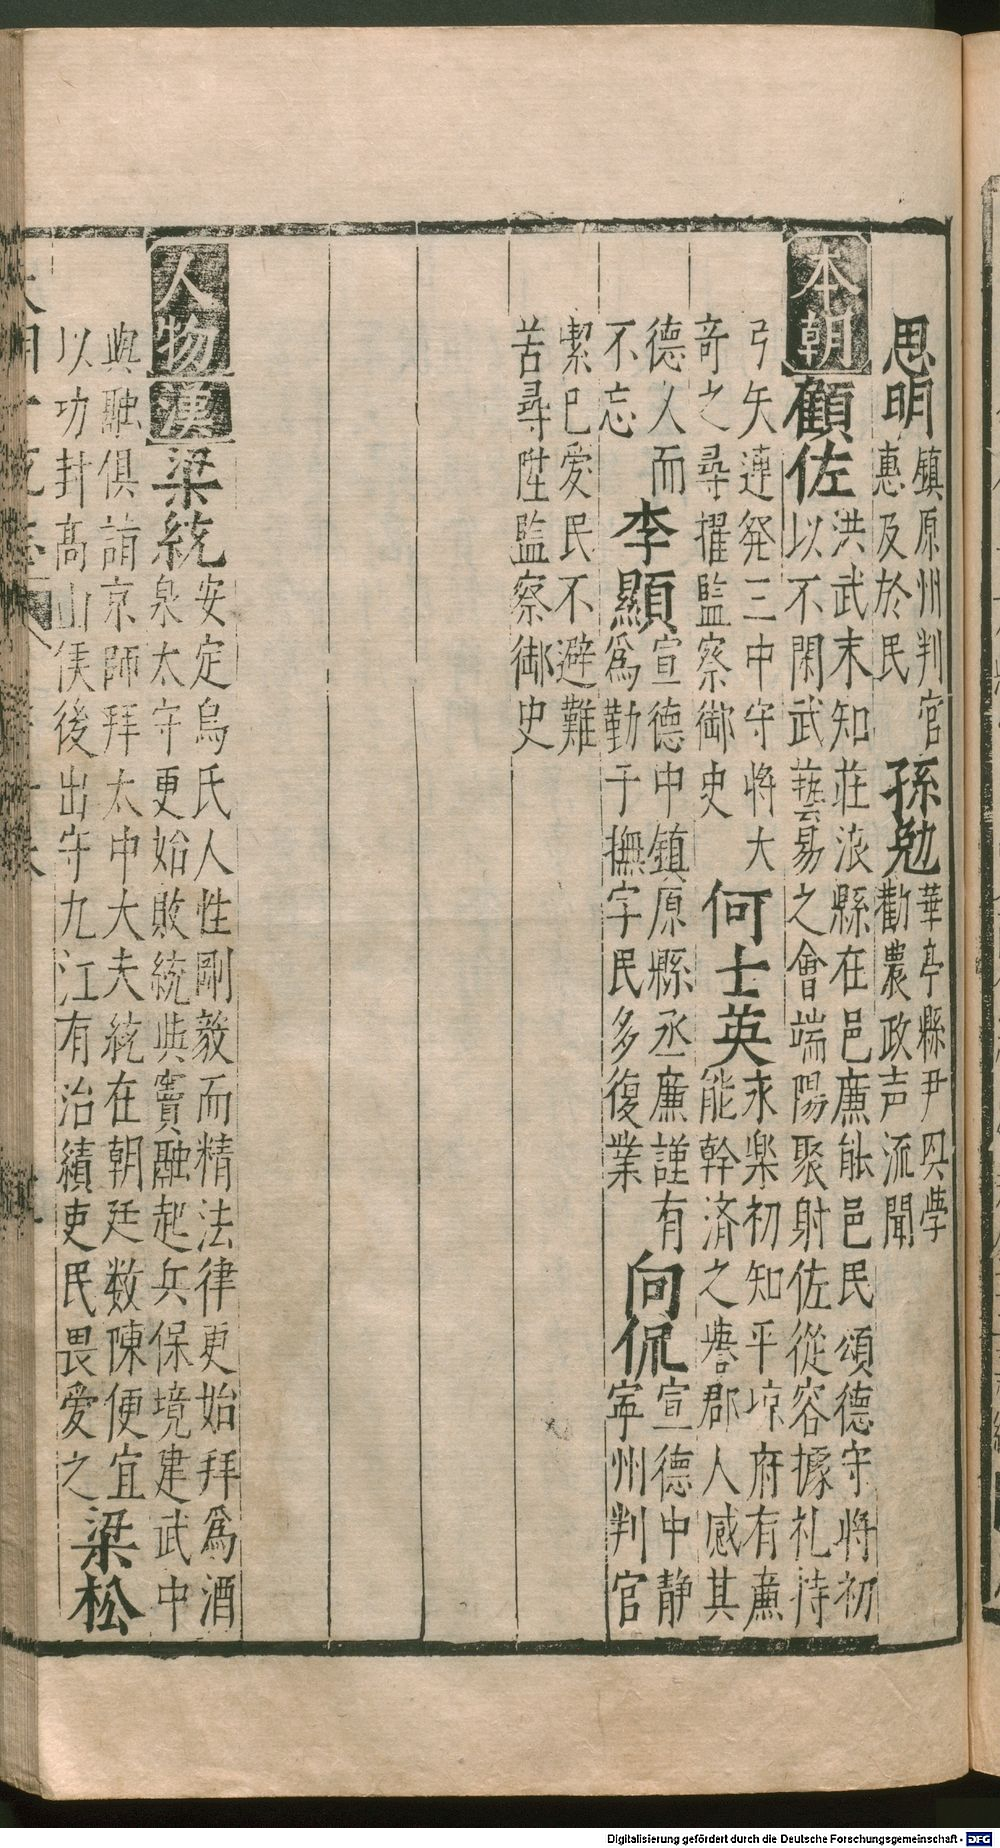 思明鎮原州判官惠及於民孫勉華亭縣尹興學勸農政声流聞
本朝顧佐洪武末知莊浪縣在邑廉能邑民頌德守将初以不閑武藝易之會端陽聚射佐從容據礼持
弓矢連発三中守将大竒之尋擢監察御史何士英永楽初知平凉府有亷能幹済之譽郡人感其
德久而不忘李顯宣德中鎮原縣丞廉謹有爲勤于撫字民多復業向侃宣德中静寜州判官
潔己爱民不避難苦尋陞監察御史
人物漢梁統安定烏氏人性剛毅而精法律更始拜爲酒泉太守更始敗統與竇融起兵保境建武中
與融俱詣京師拜太中大夫統在朝廷数陳便宜以功封高山侯後出守九江有治績吏民畏爱之梁松
Digitalisierung gefördert durch die Deutsche Forschungsgemeinschaft - DFG